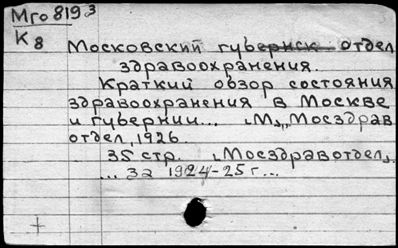 Мго 8193
К8
Московский губернск отдел
здравоохранения.
Краткий обзор состояния
здравоохранения в Москве
и губернии... „М„, Мосздрав
отдел, 1926.
35 стр. „Мосздравотдел„.
... За 1924-25 г...